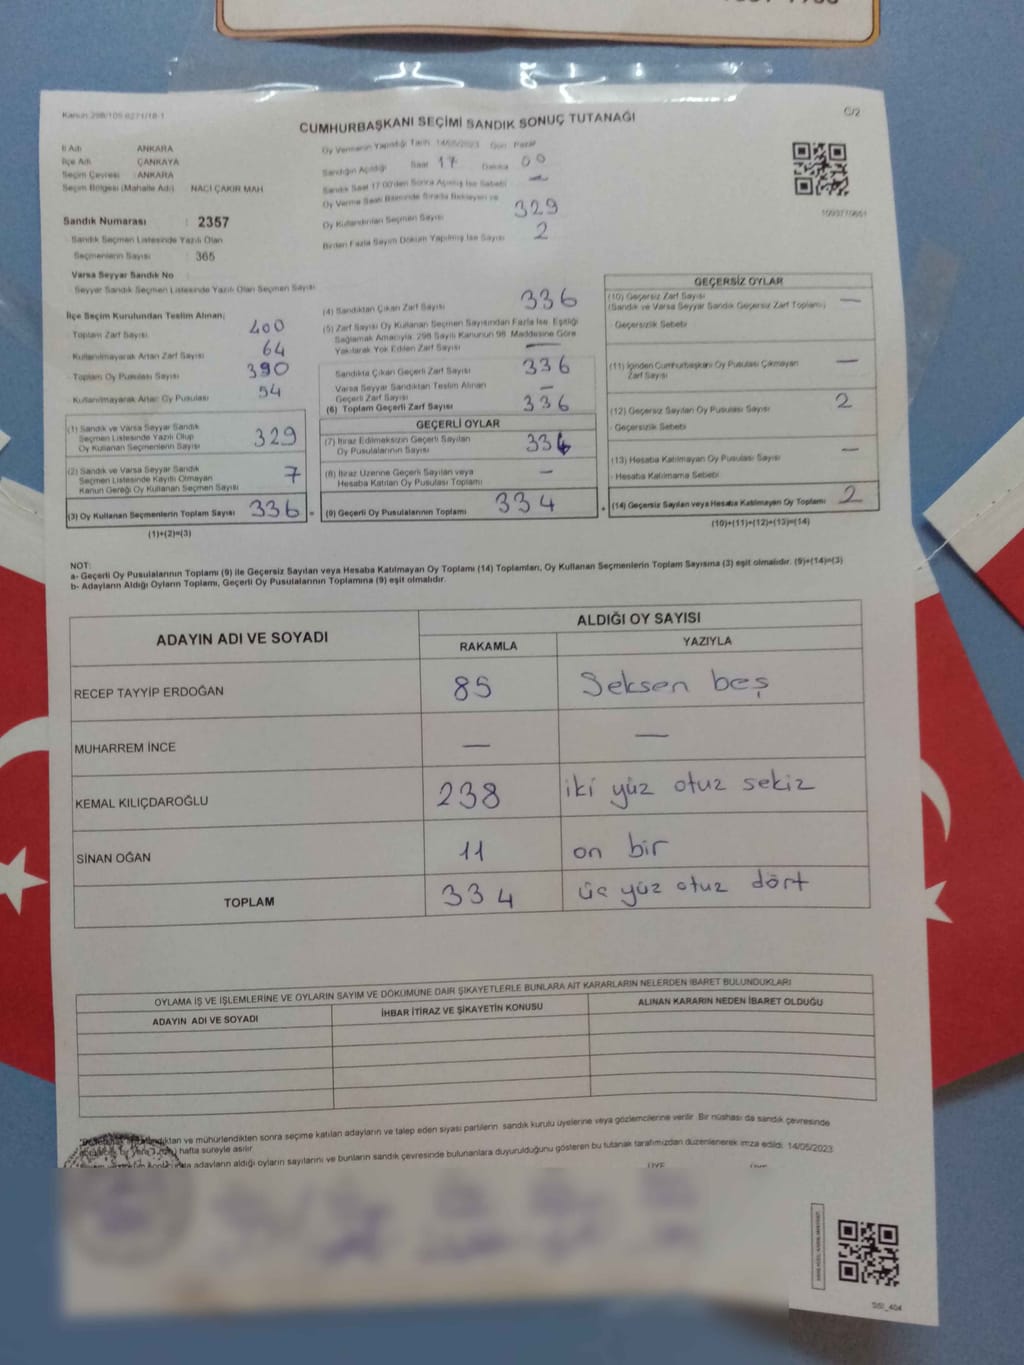 Kanun 298/105
C/2
CUMHURBAŞKANI SEÇİMİ SANDIK SONUÇ TUTANAĞI
İl Adı ANKARA
İlçe Adı ÇANKAYA
Seçim Çevresi : ANKARA
Seçim Bölgesi (Mahalle Adı) NACİ ÇAKIR MAH
Sandık Numarası : 2357
Sandık Seçmen Listesinde Yazılı Olan
Seçmenlerin Sayısı : 365
Varsa Seyyar Sandık No
Seyyar Sandık Seçmen Listesinde Yazılı Olan Seçmen Sayısı
İlçe Seçim Kurulundan Teslim Alınan;
Toplam Zarf Sayısı 400
Kullanılmayarak Artan Zarf Sayısı 64
Toplam Oy Pusulası Sayısı 390
Kullanılmayarak Artan Oy Pusulası 54
(1) Sandık ve Varsa Seyyar Sandık
Seçmen Listesinde Yazılı Olup
Oy Kullanan Seçmenlerin Sayısı 329
(2) Sandık ve Varsa Seyyar Sandık
Seçmen Listesinde Kayıtlı Olmayan
Kanun Gereği Oy Kullanan Seçmen Sayısı 7
(3) Oy Kullanan Seçmenlerin Toplam Sayısı 336 =
(1)+(2)=(3)
Oy Vermenin Yapıldığı Tarih 14/05/2023 Gün Pazar
Sandığın Açıldığı Saat 17 Dakika 00
Sandık Saat 17:00'den Sonra Açılmış İse Sebebi —
Oy Verme Saati Bitiminde Sırada Bekleyen ve
Oy Kullandırılan Seçmen Sayısı 329
Birden Fazla Sayım Döküm Yapılmış İse Sayısı 2
(4) Sandıktan Çıkan Zarf Sayısı 336
(5) Zarf Sayısı Oy Kullanan Seçmen Sayısından Fazla İse, Eşitliği
Sağlamak Amacıyla, 298 Sayılı Kanunun 98. Maddesine Göre
Yakılarak Yok Edilen Zarf Sayısı —
Sandıkta Çıkan Geçerli Zarf Sayısı 336
Varsa Seyyar Sandıktan Teslim Alınan
Geçerli Zarf Sayısı —
(6) Toplam Geçerli Zarf Sayısı 336
GEÇERLİ OYLAR
(7) İtiraz Edilmeksizin Geçerli Sayılan
Oy Pusulalarının Sayısı 334
(8) İtiraz Üzerine Geçerli Sayılan veya
Hesaba Katılan Oy Pusulası Toplamı —
(9) Geçerli Oy Pusulalarının Toplamı 334 +
GEÇERSİZ OYLAR
(10) Geçersiz Zarf Sayısı —
(Sandık ve Varsa Seyyar Sandık Geçersiz Zarf Toplamı)
- Geçersizlik Sebebi
(11) İçinden Cumhurbaşkanı Oy Pusulası Çıkmayan
Zarf Sayısı —
(12) Geçersiz Sayılan Oy Pusulası Sayısı 2
- Geçersizlik Sebebi
(13) Hesaba Katılmayan Oy Pusulası Sayısı —
- Hesaba Katılmama Sebebi
(14) Geçersiz Sayılan veya Hesaba Katılmayan Oy Toplamı 2
(10)+(11)+(12)+(13)=(14)
NOT:
a- Geçerli Oy Pusulalarının Toplamı (9) ile Geçersiz Sayılan veya Hesaba Katılmayan Oy Toplamı (14) Toplamları, Oy Kullanan Seçmenlerin Toplam Sayısına (3) eşit olmalıdır. (9)+(14)=(3)
b- Adayların Aldığı Oyların Toplamı, Geçerli Oy Pusulalarının Toplamına (9) eşit olmalıdır.
ADAYIN ADI VE SOYADI ALDIĞI OY SAYISI
RAKAMLA YAZIYLA
RECEP TAYYİP ERDOĞAN 85 Seksen beş
MUHARREM İNCE — —
KEMAL KILIÇDAROĞLU 238 iki yüz otuz sekiz
SİNAN OĞAN 11 on bir
TOPLAM 334 üç yüz otuz dört
OYLAMA İŞ VE İŞLEMLERİNE VE OYLARIN SAYIM VE DÖKÜMÜNE DAİR ŞİKAYETLERLE BUNLARA AİT KARARLARIN NELERDEN İBARET BULUNDUKLARI
ADAYIN ADI VE SOYADI İHBAR İTİRAZ VE ŞİKAYETİN KONUSU ALINAN KARARIN NEDEN İBARET OLDUĞU
ve mühürlendikten sonra seçime katılan adayların ve talep eden siyasi partilerin sandık kurulu üyelerine veya gözlemcilerine verilir. Bir nüshası da sandık çevresinde
hafta süreyle asılır.
adayların aldığı oyların sayılarını ve bunların sandık çevresinde bulunanlara duyurulduğunu gösteren bu tutanak tarafımızdan düzenlenerek imza edildi. 14/05/2023
ÜYE
SSI_404